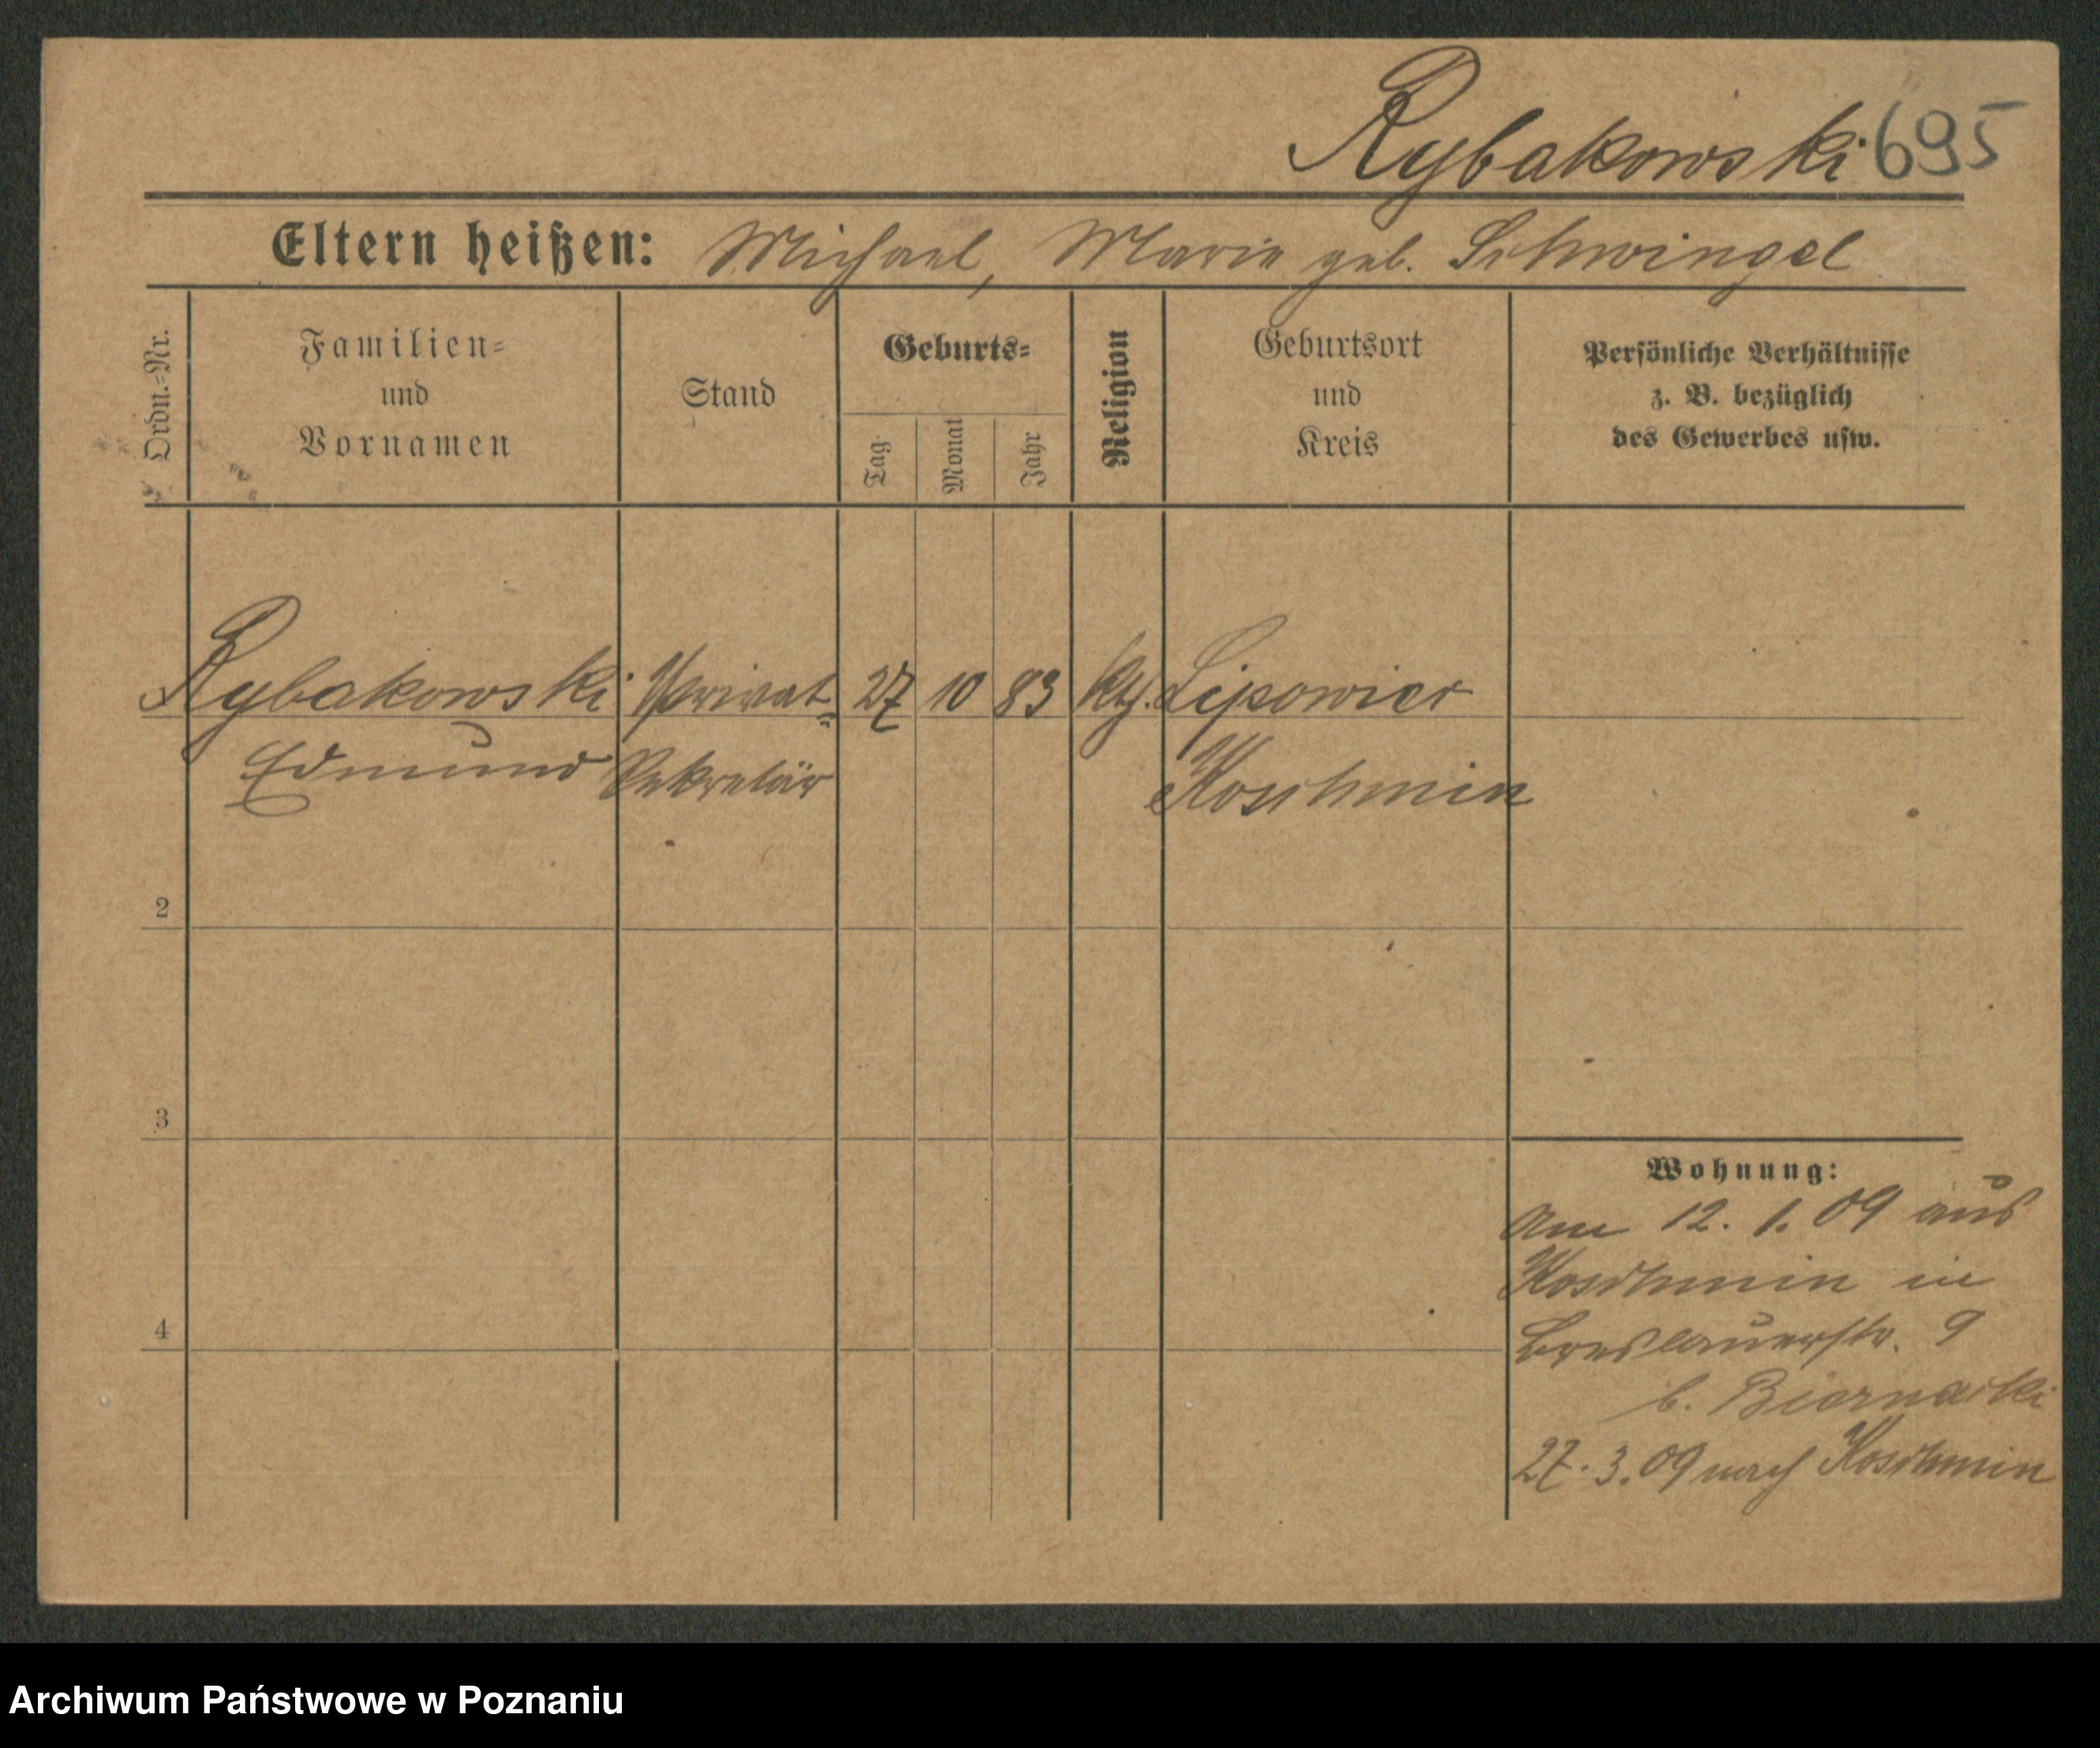 Rybakowski 695
Eltern heißen: Michael, Marie geb. Schwingel
Ordn.=Nr.
Familien=
und
Vornamen
Stand
Geburts=
Tag
Monat
Jahr
Religion
Geburtsort
und
Kreis
Persönliche Verhältnisse
z. B. bezüglich
des Gewerbes usw.
Rybakowski Privat= 27 10 83 kth. Lipowiec
Edmund Sekretär Koschmin
2
3
4
Wohnung:
Am 12. 1. 09 aus
Koschmin in
Breslauerstr. 9
b. Biernacki
27. 3. 09 nach Koschmin
Archiwum Państwowe w Poznaniu